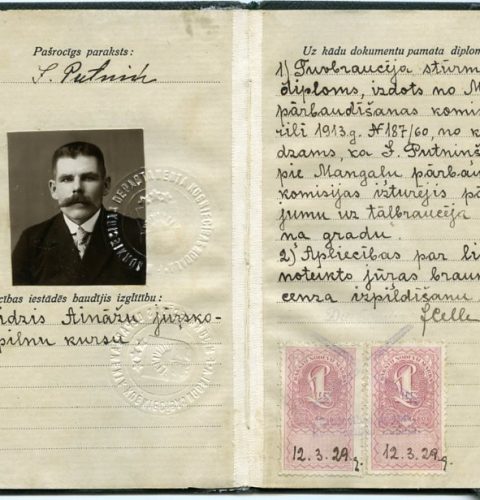 Pašrocīgs paraksts:
S. Putniņ
cības iestādēs baudījis izglītību:
idzis Ainažu jūrsko-
pilnu kursu
Uz kādu dokumentu pamata diplom
1) Tuvbraucēja stūrm
diploms, izdots no M
pārbaudīšanas komis
rilī 1913.g. №187/60, no k
dzams, ka S. Putniņš
pie Mangaļu pārbau
komisijas izturējis pā
jumu uz tālbraucēja
na gradu.
2) Apliecības par li
noteikto jūras braun
cenza izpildīšanu
1
1
12.3.29.g.
12.3.29.g.